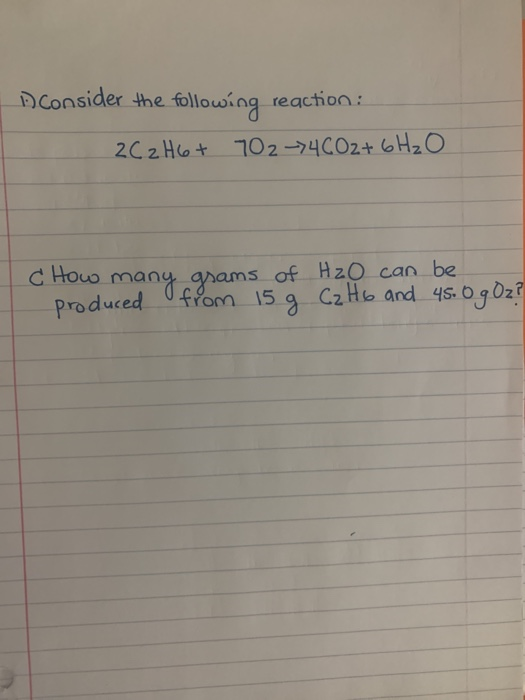 1.) Consider the following reaction:
2C2H6 + 7O2 → 4CO2 + 6H2O
C How many grams of H2O can be
produced from 15 g C2H6 and 45.0 g O2?